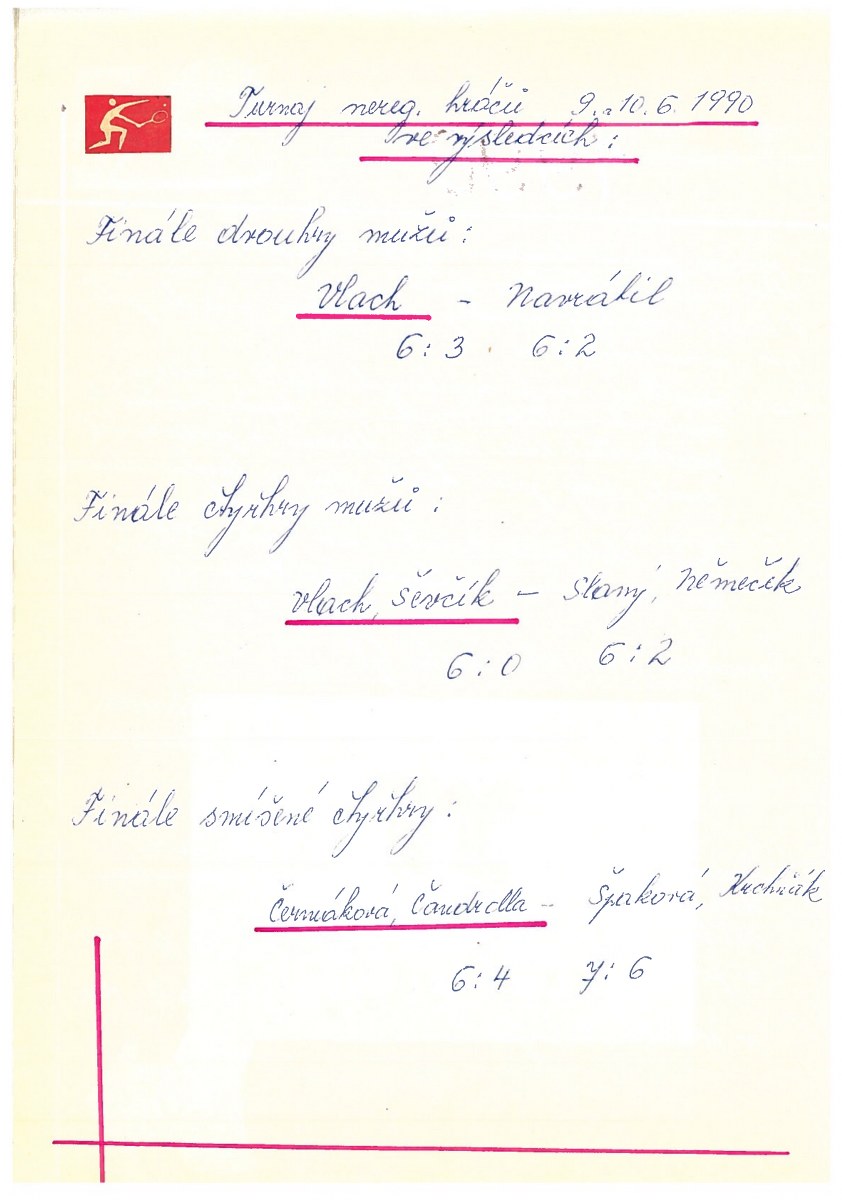 Turnaj nereg. hráčů 9. a 10. 6. 1990
ve výsledcích :
Finále dvouhry mužů :
Vlach - Navrátil
6 : 3 6 : 2
Finále čtyřhry mužů :
Vlach, Ševčík - Slaný, Němeček
6 : 0 6 : 2
Finále smíšené čtyřhry :
Čermáková, Čandrdla - Špaková, Krchňák
6 : 4 7 : 6